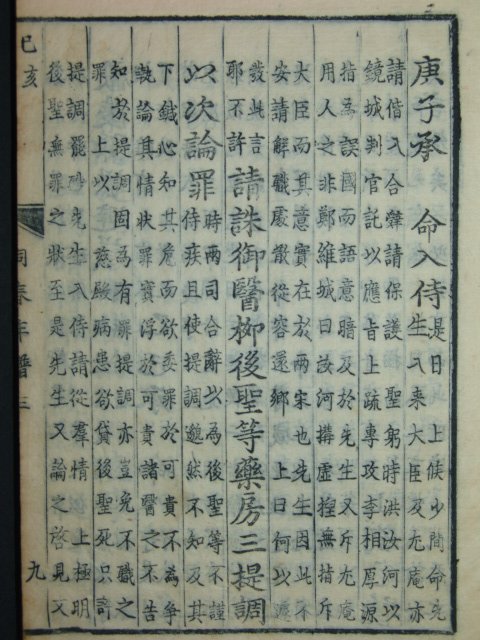 庚子承　命入侍
是日　上候少間命先
生入来大臣及尤庵亦
請偕入合辭請保護聖躬時洪汝河以
鏡城判官託以應旨上疏專攻李相厚源
指為誤國而語意暗及於先生又斥尤庵
用人之非鄭維城曰汝河搆虛捏無指斥
大臣而其意實在於兩宋也先生因此不
安請解職處散從容還鄉　上曰何以遽
發此言
耶不許
請誅御醫柳後聖等藥房三提調
以次論罪
時兩司合辭以為後聖等不謹
侍疾且使提調邈然不知及其
下鍼心知其危而欲委罪於可貴不為爭
執論其情狀罪實浮於可貴諸醫之不告
知於提調固為有罪提調亦豈免不職之
罪　上以　慈殿病患欲貸後聖死只許
提調罷職先生入侍請從羣情　上極明
後聖無罪之狀至是先生又論之啓見文
己亥
同春年譜三
九